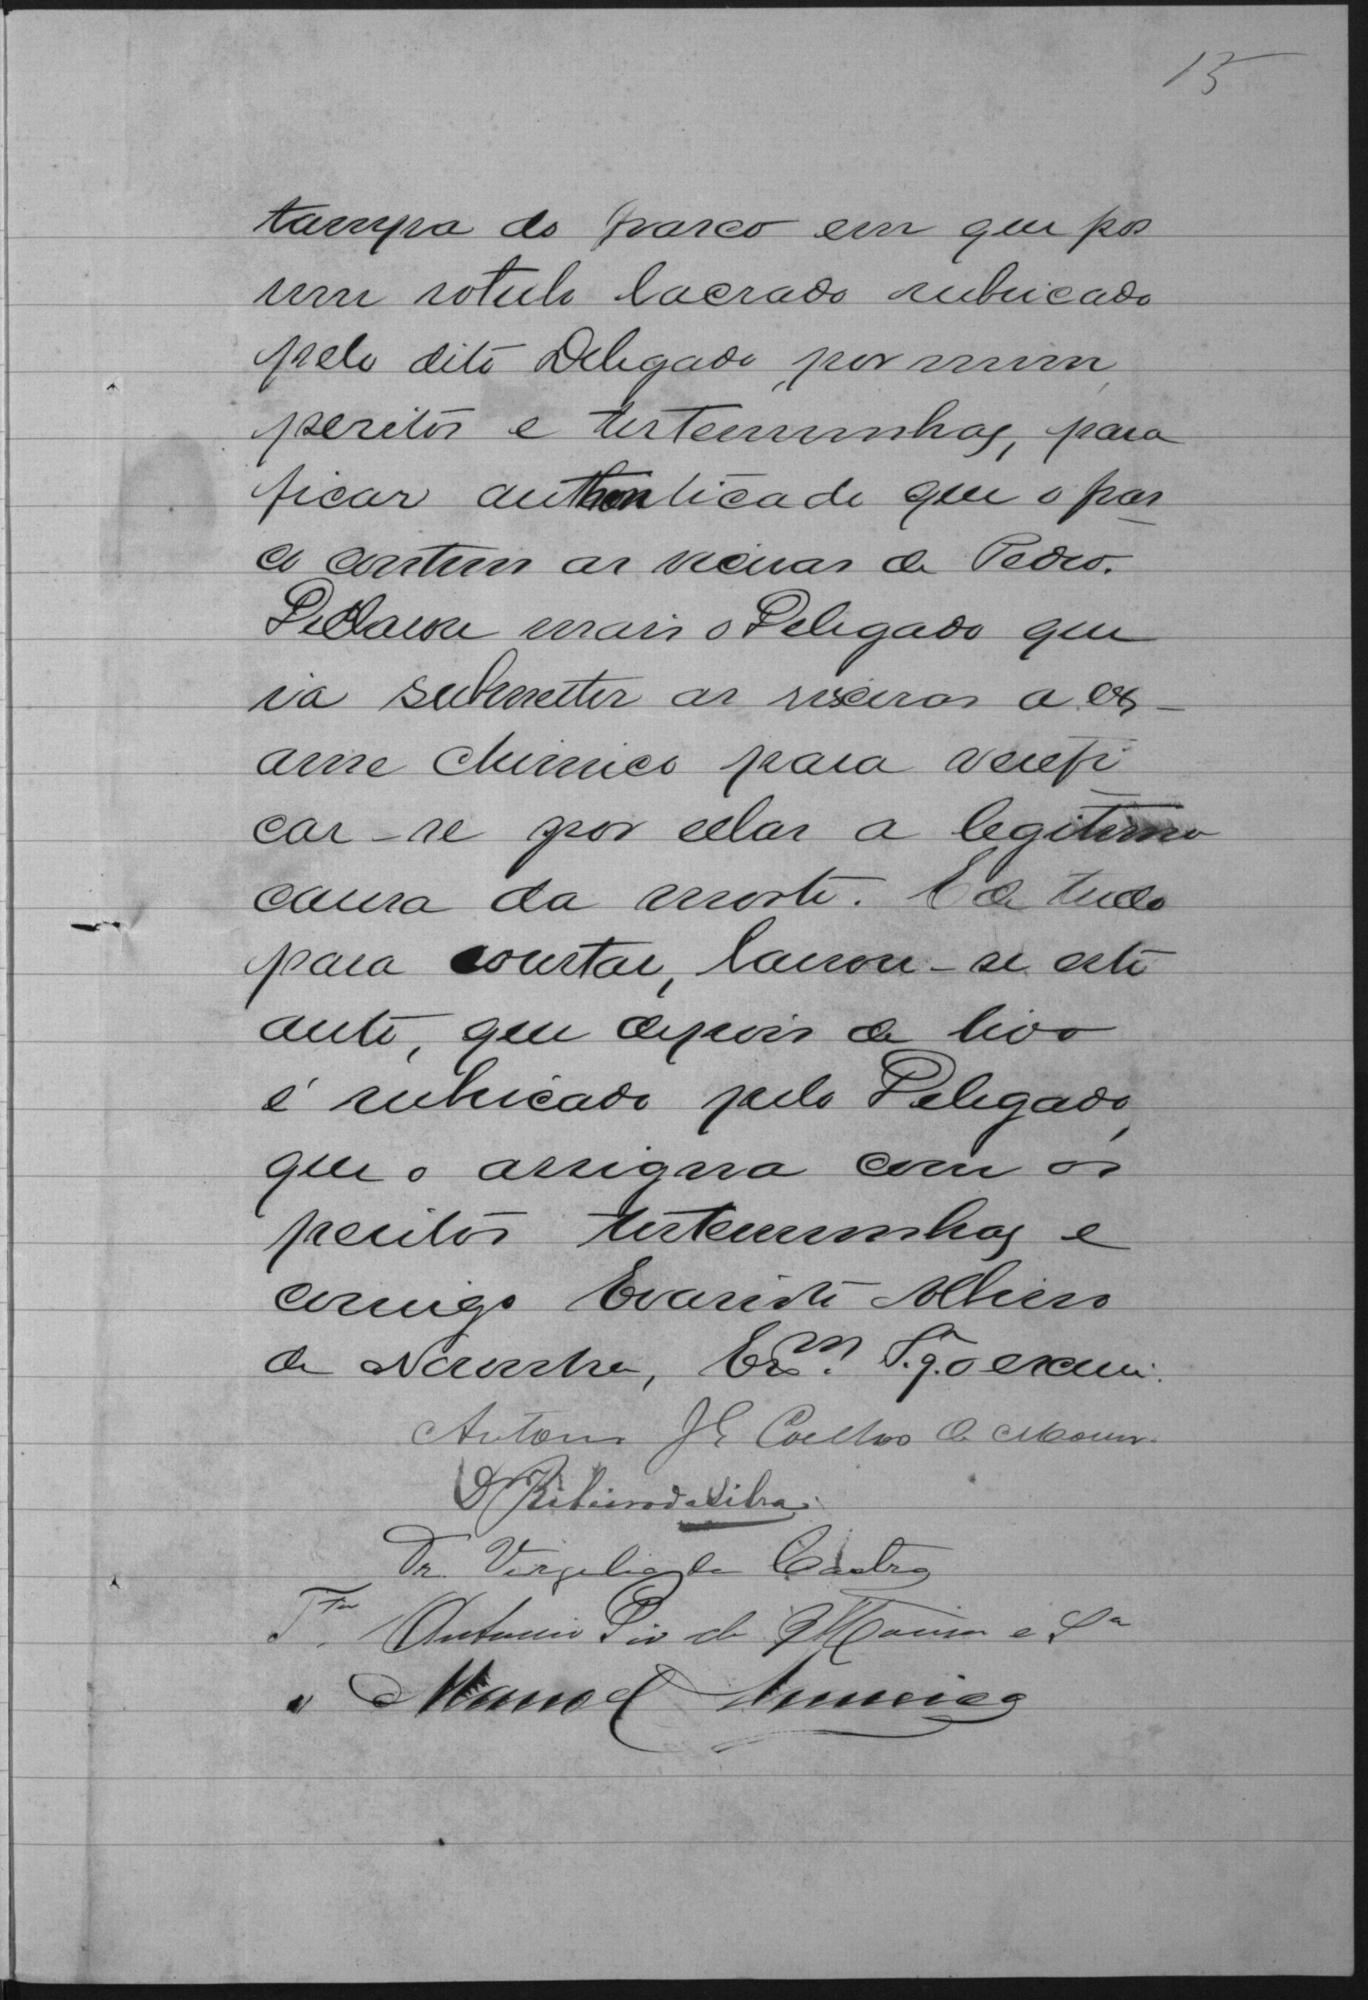 15
tampa do frasco em que pos
um rotulo lacrado rubricado
pelo dito Delegado, por mim,
peritos e testemunhas, para
ficar authenticado que o fras
co contem as viceras de Pedro.
Declarou mais o Delegado que
ia submetter as visceras a ex-
ame chimico para verifi
car-se por ellas a legitima
causa da morte. E de tudo
para constar, lavrou-se este
auto, que depois de lido
é rubricado pelo Delegado,
que o assigna com os
peritos testemunhas e
comigo Evaristo
de Noronha, Esm. q. o escrevi.
Antonio J E Coelho de Moura
D Ribeiro da Silva
Dr. Virgilio de Castro
Ttª. Antonio Pio de Moura e Sª
" Manoel